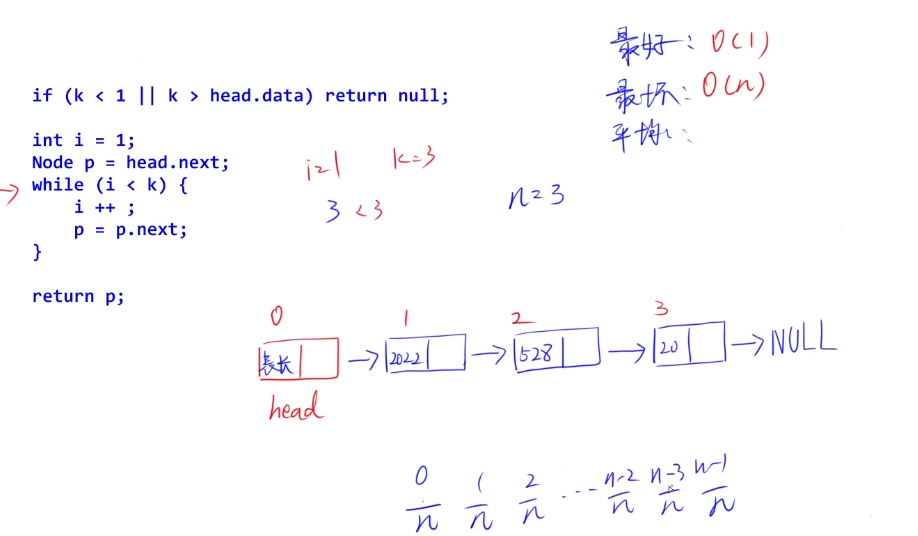 最好: O(1)
最坏: O(n)
平均:
if (k < 1 || k > head.data) return null;
int i = 1;
Node p = head.next;
while (i < k) {
i ++ ;
p = p.next;
}
return p;
i=1 k=3
3 < 3
n=3
0 1 2 3
表长 2022 528 20 NULL
head
0/n 1/n 2/n ... n-2/n n-3/n n-1/n